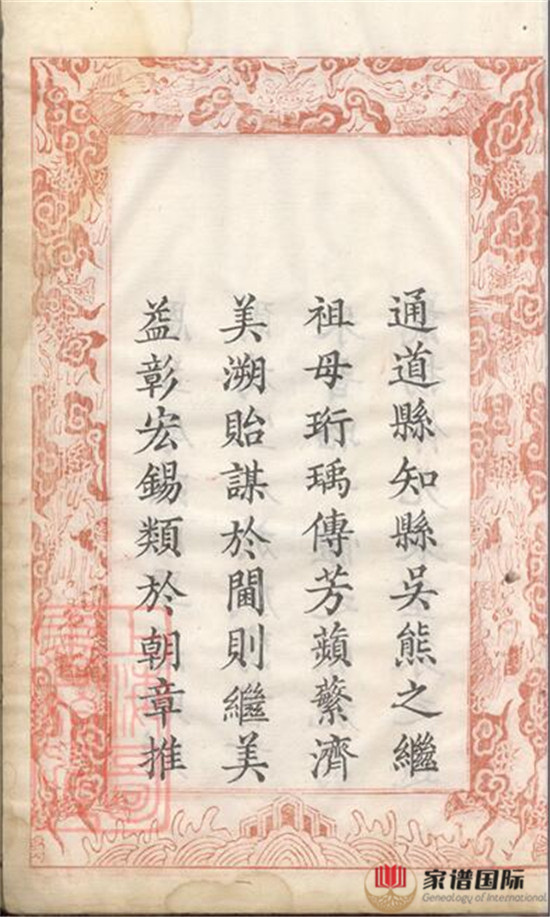 通道縣知縣吳熊之繼
祖母珩瑀傳芳蘋蘩濟
美溯貽謀於閫則繼美
益彰宏錫類於朝章推
家谱国际
Genealogy of International